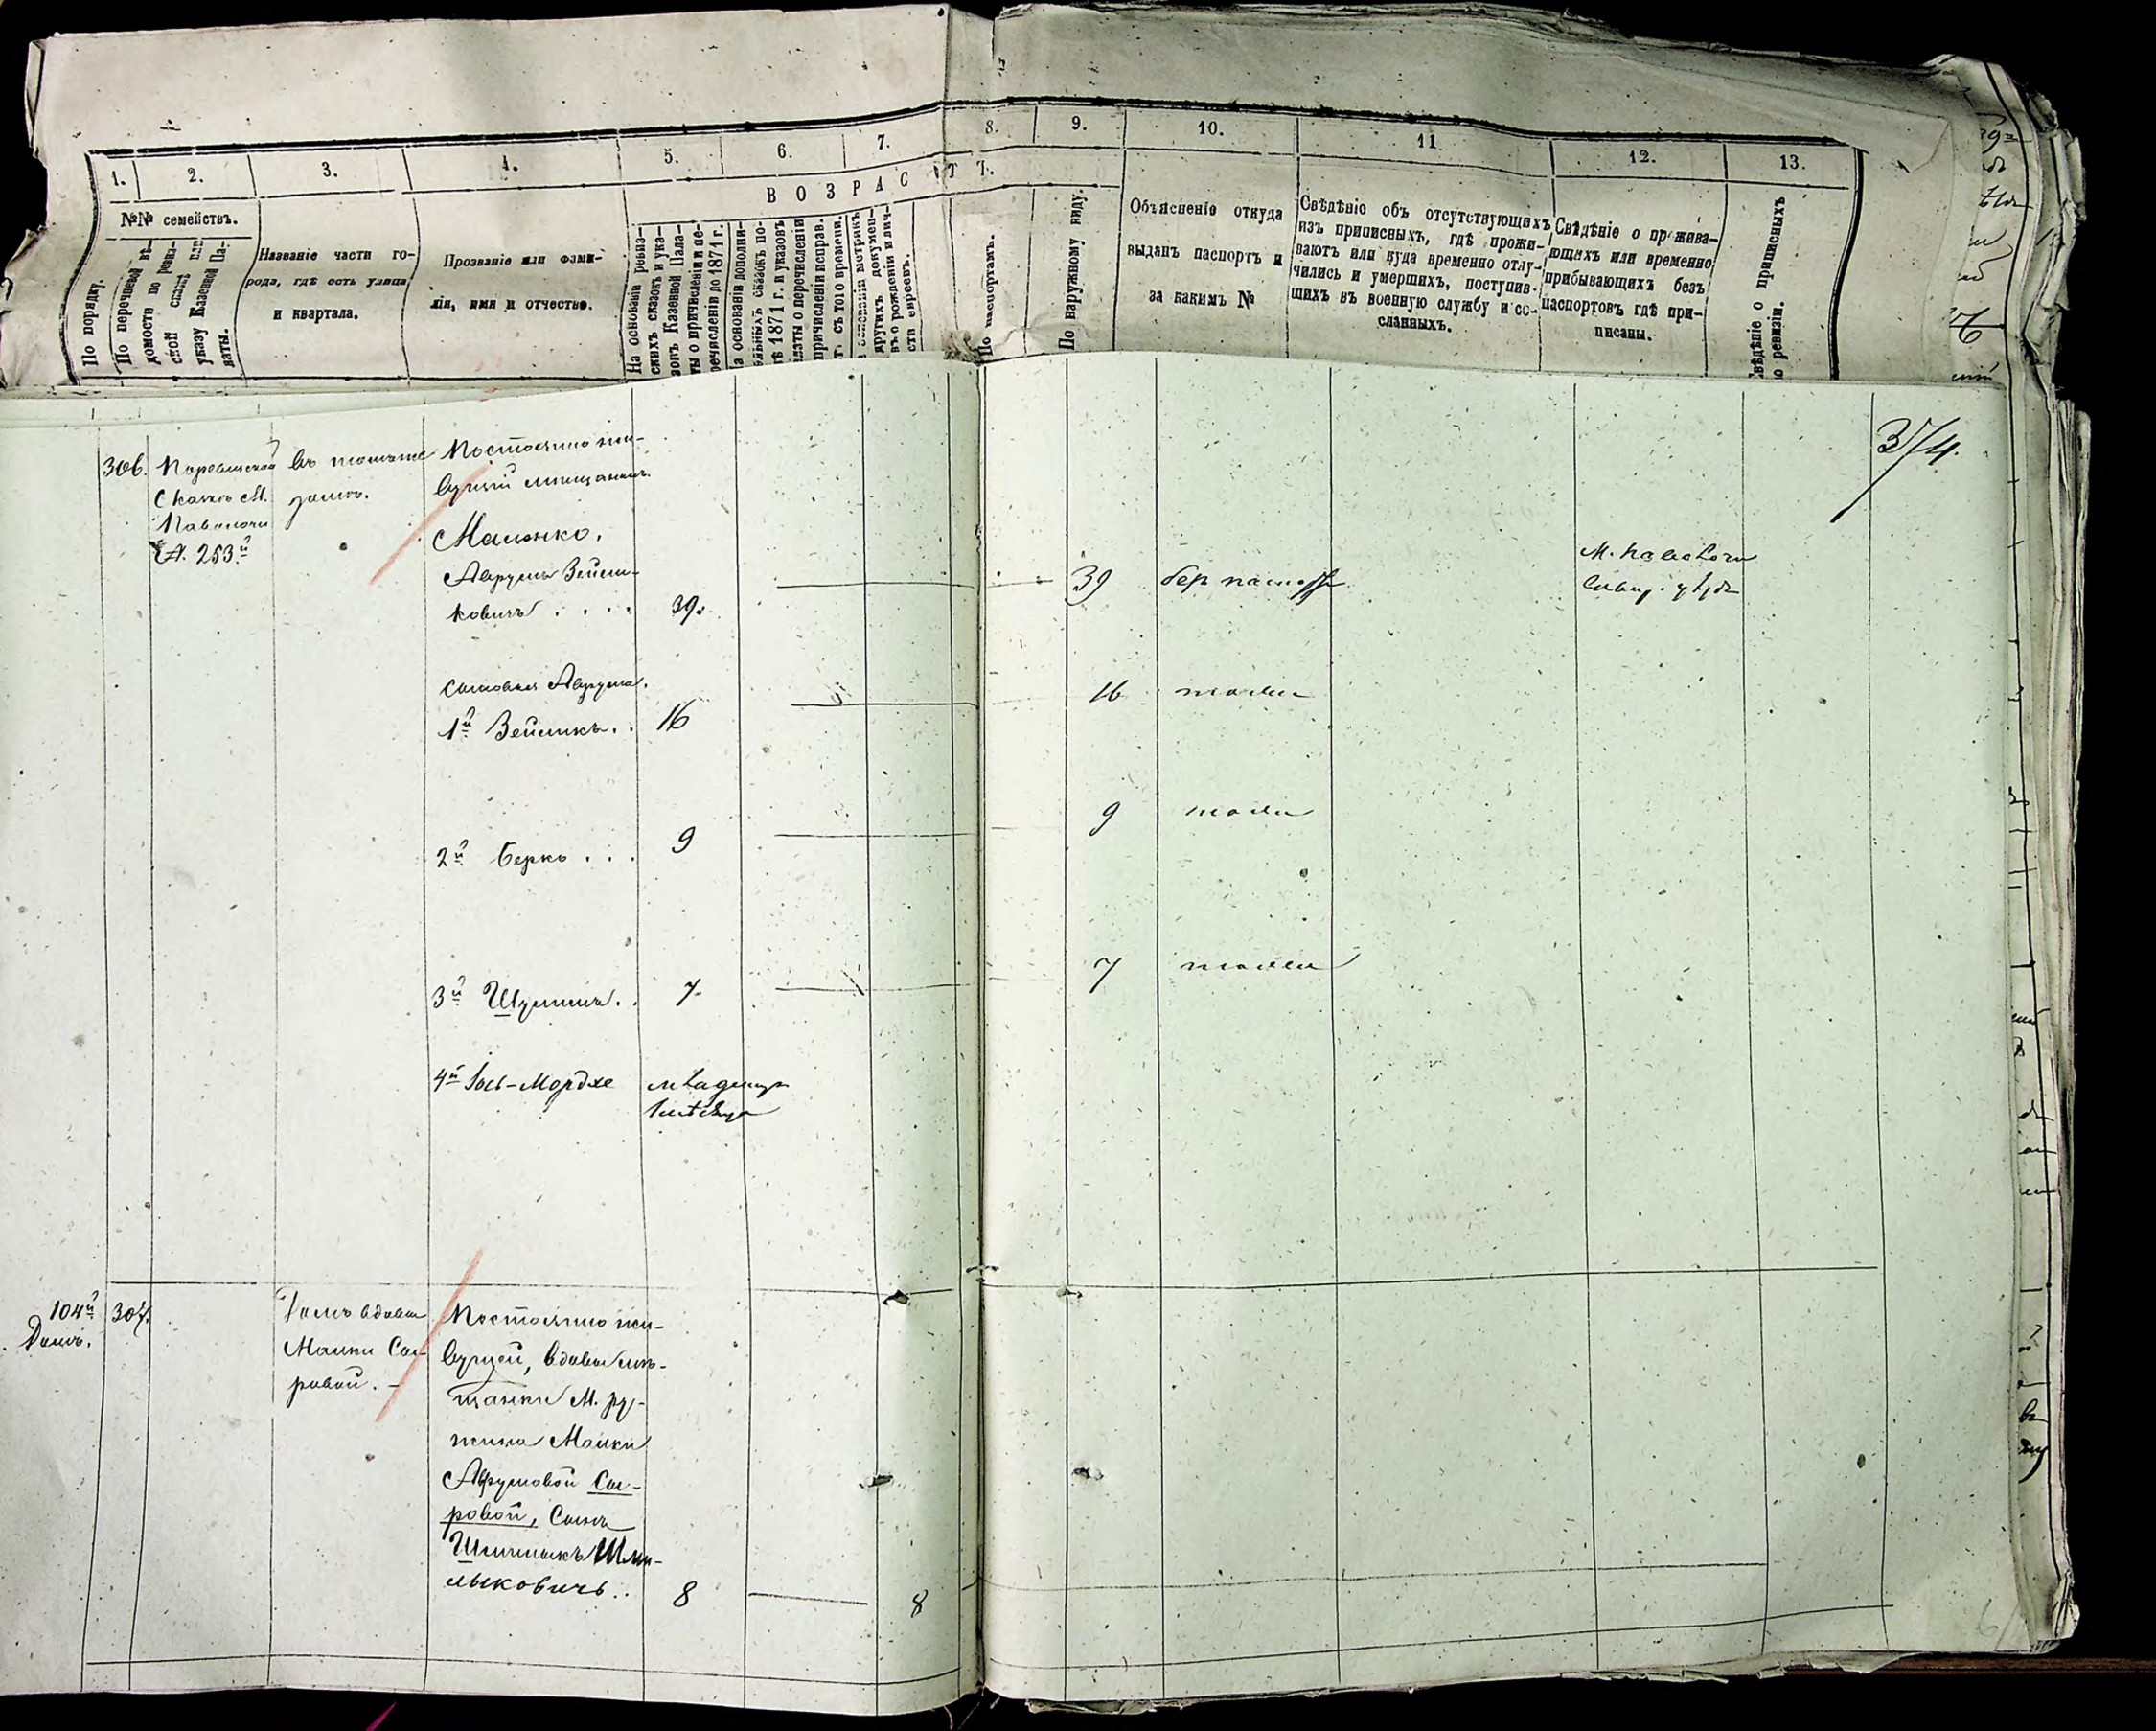 1.
2.
3.
4.
5.
6.
7.
8.
9.
10.
11.
12.
13.
ВОЗРАСТЪ.
№№ семействъ.
По порядку.
По перечневой вѣ-
домости по реви-
ской сказкѣ или
указу Казеной Па-
латы.
Названіе части го-
рода, гдѣ есть улица
и квартала.
Прозваніе или фами-
лія, имя и отчество.
На основаніи ревиз-
скихъ сказокъ и ука-
зовъ Казенной Пала-
ты о причисленіи и пе-
речисленіи до 1871 г.
а основаніи дополни-
ельныхъ сказокъ по-
ѣ 1871 г. и указовъ
латы о перечисленіи
причисленіи исправ.
съ того времени.
метрикъ
другихъ докумен-
въ о рожденіи и лич-
сти евреевъ.
По паспортамъ.
По наружному виду.
Объясненіе откуда
выданъ паспортъ и
за какимъ №
Свѣдѣніе объ отсутствующихъ
изъ приписныхъ, гдѣ прожи-
ваютъ или куда временно отлу-
чились и умершихъ, поступив-
шихъ въ военную службу и со-
сланныхъ.
Свѣдѣніе о прожива-
ющихъ или временно
прибывающихъ безъ
паспортовъ гдѣ при-
писаны.
Свѣдѣніе о приписныхъ
по ревизіи.
374.
306.
Сказкѣ М.
Паволочи
253й
въ томъ же
домѣ.
Постоянно жи-
вущій мѣщанинъ
Маленко,
Аврумъ Зейли-
ковичъ . . . .
39.
39
без паспорт
М. Паволочи
Сквир. уѣзда
сыновья Аврума.
1й Зейликъ. .
16
16
тоже
2й Берко . . .
9
9
тоже
3й
7
7
тоже
4й Іось-Мордхе
младенца
104й
Домъ.
307.
Домъ вдовы
Малки Сы-
ровой. -
Постоянно жи-
вущей, вдовы мѣ-
щанки М. Ру-
жина Малки
Аврумовой Сы-
ровой, Сынъ
Шмилыкъ Шми-
лыковичъ. .
8
8